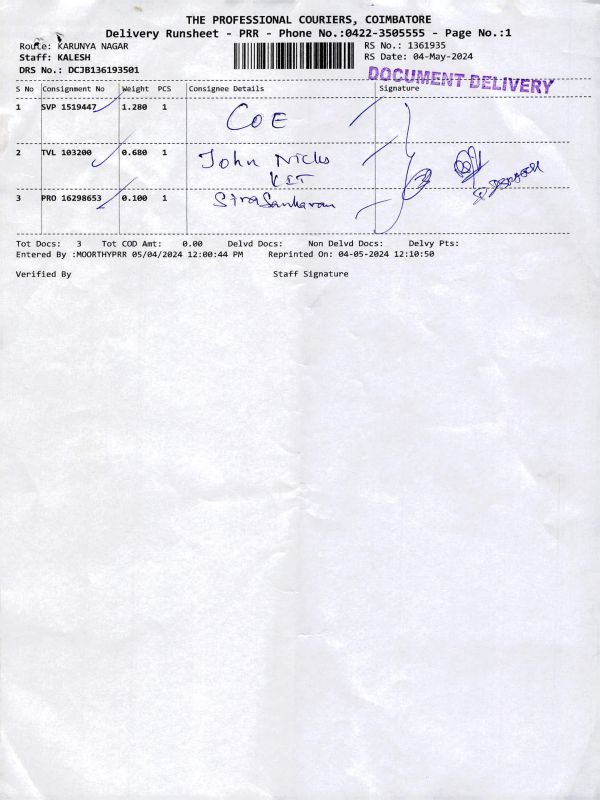 THE PROFESSIONAL COURIERS, COIMBATORE
Delivery Runsheet - PRR - Phone No.:0422-3505555 - Page No.:1
Route: KARUNYA NAGAR RS No.: 1361935
Staff: KALESH RS Date: 04-May-2024
DRS No.: DCJB136193501
DOCUMENT DELIVERY
S No Consignment No Weight PCS Consignee Details Signature
1 SVP 1519447 1.280 1 COE
2 TVL 103200 0.680 1 John Nicks
KIT
3 PRO 16298653 0.100 1 SivaSankaran
Tot Docs: 3 Tot COD Amt: 0.00 Delvd Docs: Non Delvd Docs: Delvy Pts:
Entered By :MOORTHYPRR 05/04/2024 12:00:44 PM Reprinted On: 04-05-2024 12:10:50
Verified By Staff Signature